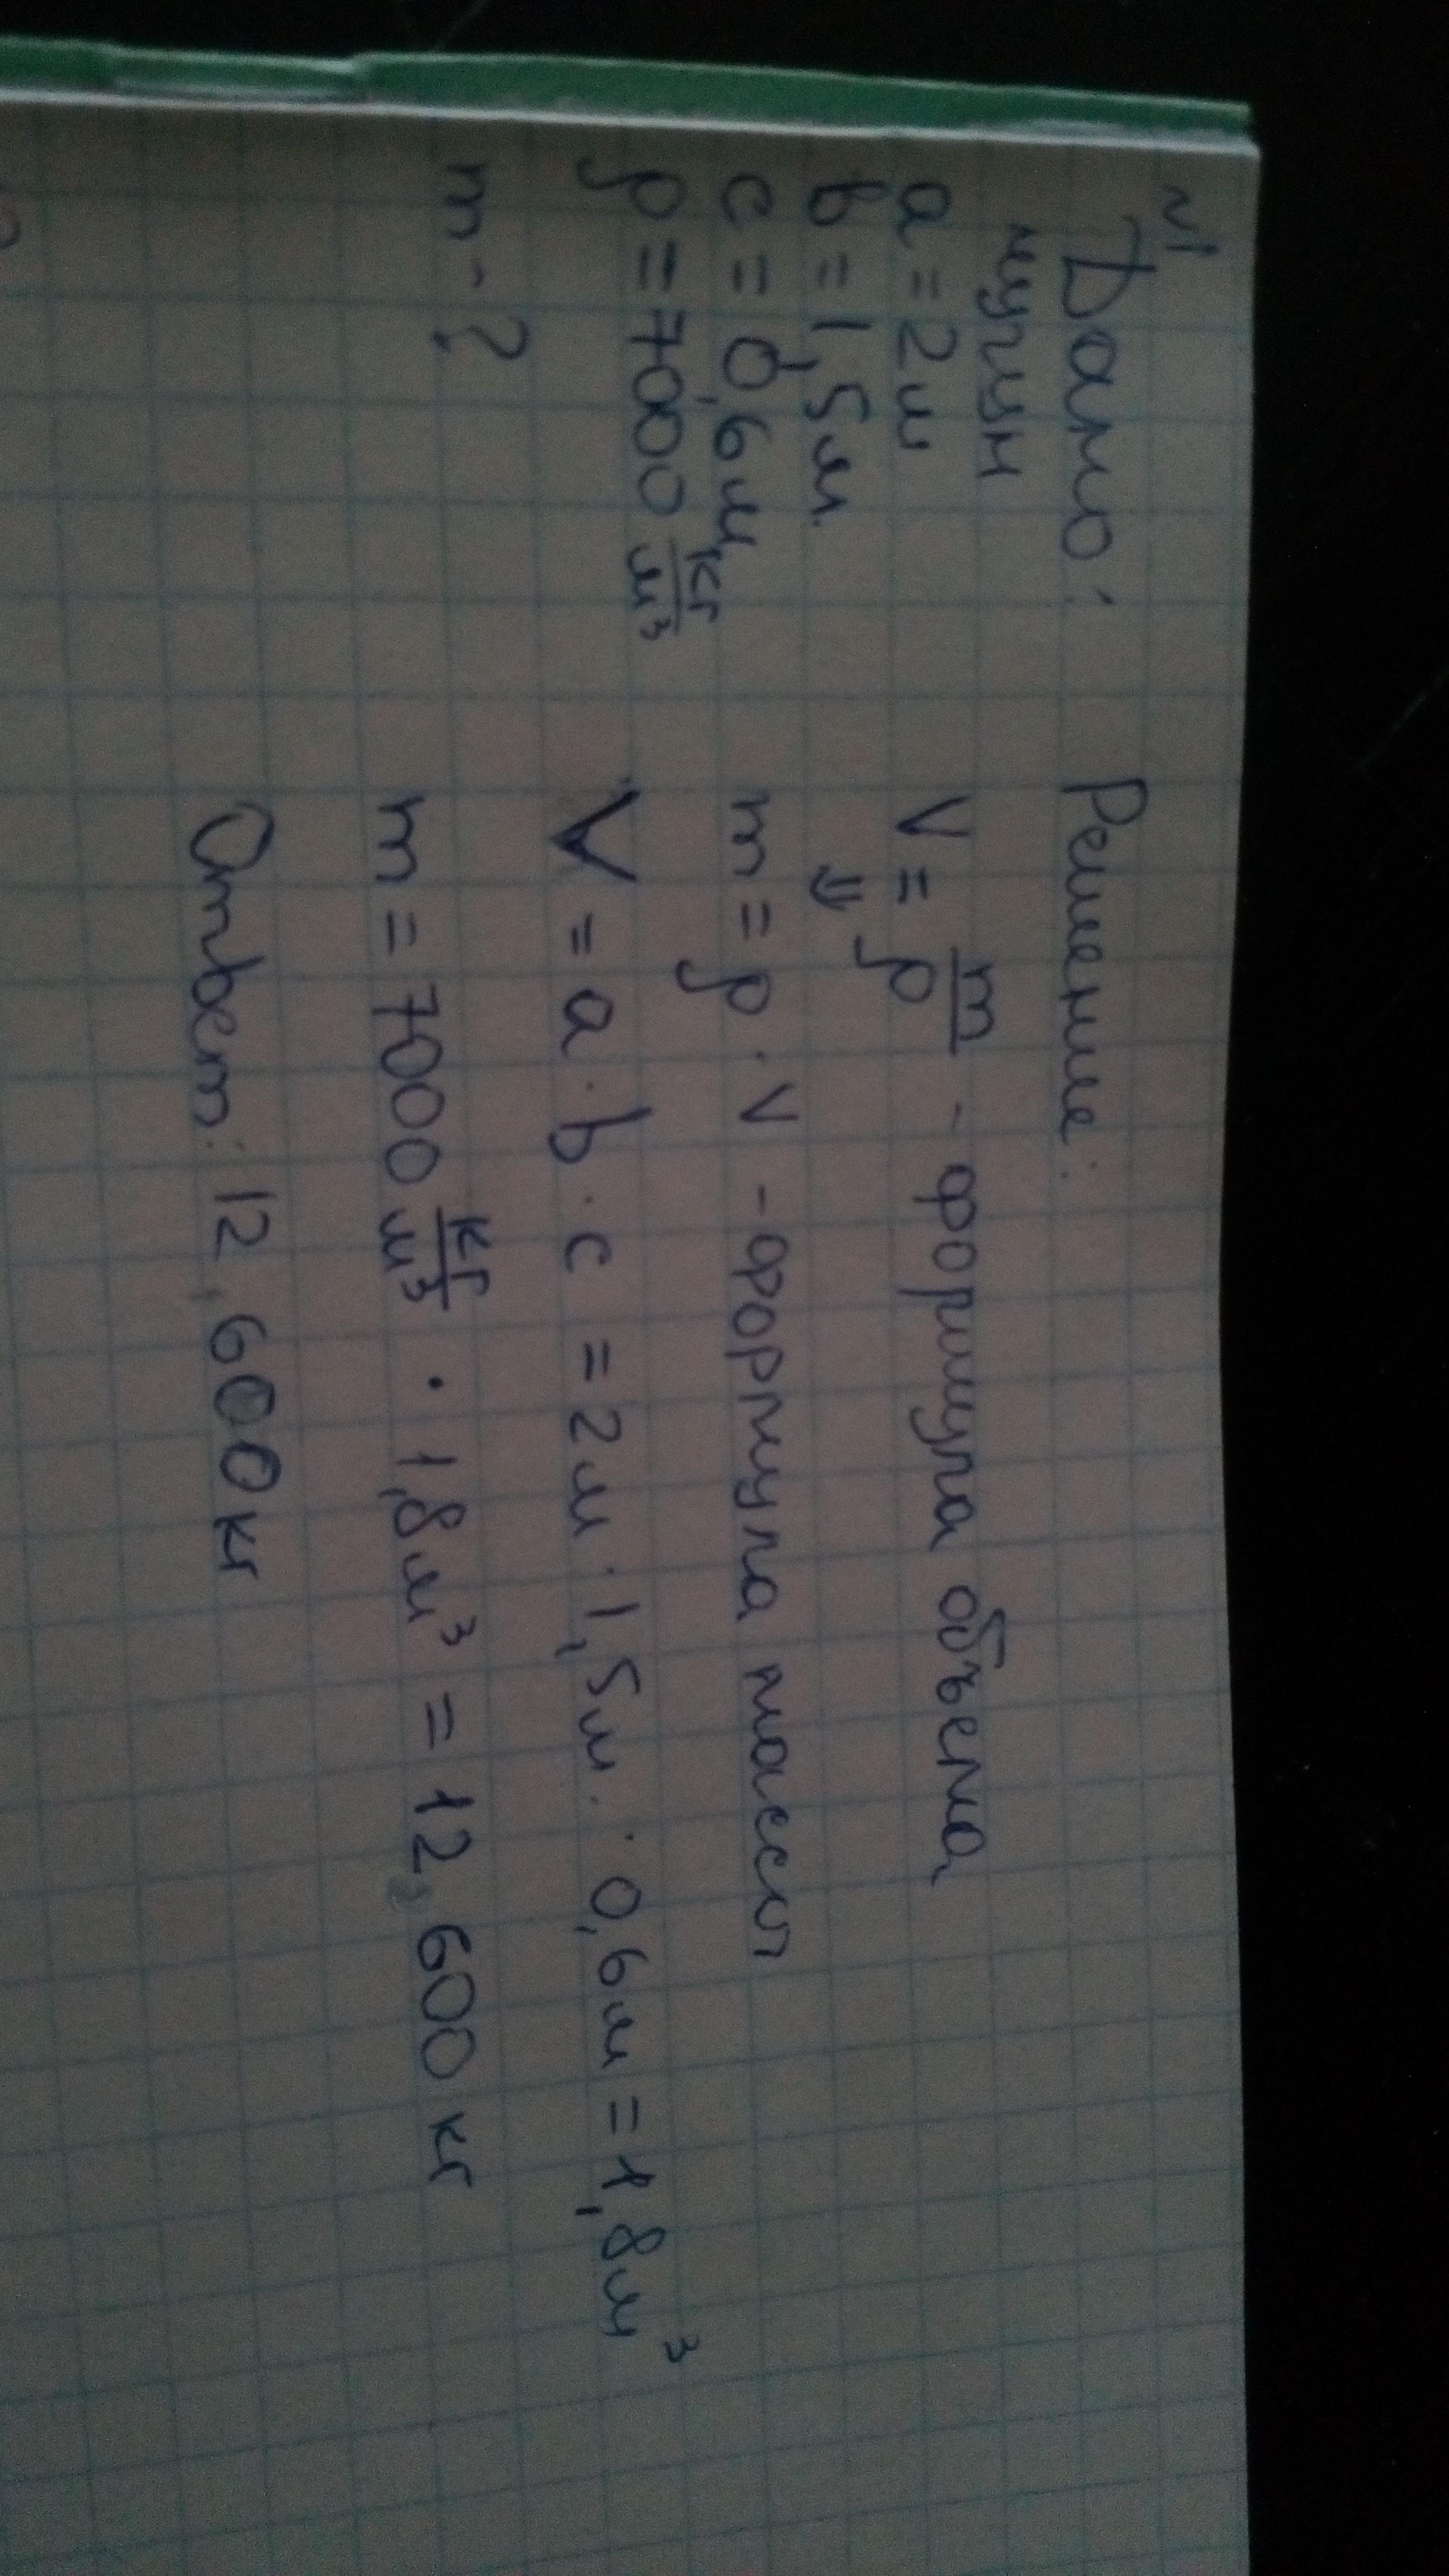 №1
Дано:
чугун
a = 2м
b = 1,5м
c = 0,6м
ρ = 7000 кг/м³
m - ?
Решение:
V = m/ρ - формула объема
⇓
m = ρ · V - формула массы
V = a · b · c = 2м · 1,5м · 0,6м = 1,8м³
m = 7000 кг/м³ · 1,8м³ = 12,600 кг
Ответ: 12,600кг